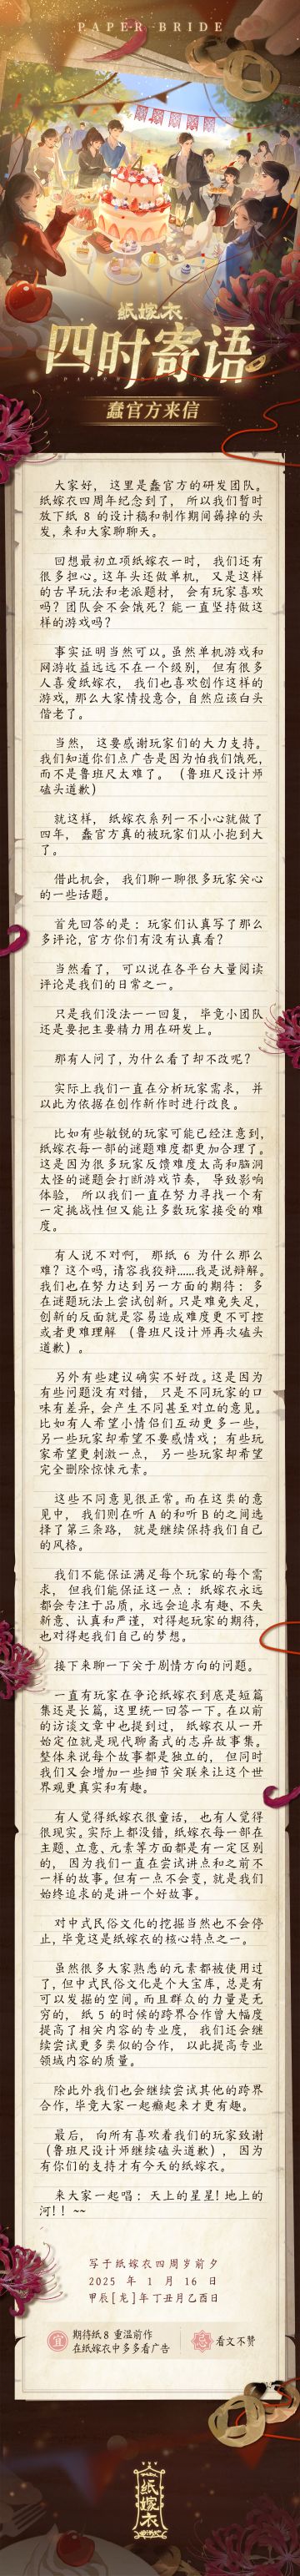 PAPER BRIDE
紙嫁衣
四时寄语
蠢官方来信
大家好，这里是蠢官方的研发团队。
纸嫁衣四周年纪念到了，所以我们暂时
放下纸 8 的设计稿和制作期间薅掉的头
发，来和大家聊聊天。
回想最初立项纸嫁衣一时，我们还有
很多担心。这年头还做单机，又是这样
的古早玩法和老派题材，会有玩家喜欢
吗？团队会不会饿死？能一直坚持做这
样的游戏吗？
事实证明当然可以。虽然单机游戏和
网游收益远远不在一个级别，但有很多
人喜爱纸嫁衣，我们也喜欢创作这样的
游戏，那么大家情投意合，自然应该白头
偕老了。
当然，这要感谢玩家们的大力支持。
我们知道你们点广告是因为怕我们饿死，
而不是鲁班尺太难了。（鲁班尺设计师
磕头道歉）
就这样，纸嫁衣系列一不小心就做了
四年，蠢官方真的被玩家们从小抱到大
了。
借此机会，我们聊一聊很多玩家关心
的一些话题。
首先回答的是：玩家们认真写了那么
多评论，官方你们有没有认真看？
当然看了，可以说在各平台大量阅读
评论是我们的日常之一。
只是我们没法一一回复，毕竟小团队
还是要把主要精力用在研发上。
那有人问了，为什么看了却不改呢？
实际上我们一直在分析玩家需求，并
以此为依据在创作新作时进行改良。
比如有些敏锐的玩家可能已经注意到，
纸嫁衣每一部的谜题难度都更加合理了。
这是因为很多玩家反馈难度太高和脑洞
太怪的谜题会打断游戏节奏，导致影响
体验，所以我们一直在努力寻找一个有
一定挑战性但又能让多数玩家接受的难
度。
有人说不对啊，那纸 6 为什么那么
难？这个吗，请容我狡辩……我是说辩解。
我们也在努力达到另一方面的期待：多
在谜题玩法上尝试创新。只是难免失足，
创新的反面就是容易造成难度更不可控
或者更难理解（鲁班尺设计师再次磕头
道歉）。
另外有些建议确实不好改。这是因为
有些问题没有对错，只是不同玩家的口
味有差异，会产生不同甚至对立的意见。
比如有人希望小情侣们互动更多一些，
另一些玩家却希望不要感情戏；有些玩
家希望更刺激一点，另一些玩家却希望
完全删除惊悚元素。
这些不同意见很正常。而在这类的意
见中，我们则在听 A 的和听 B 的之间选
择了第三条路，就是继续保持我们自己
的风格。
我们不能保证满足每个玩家的每个需
求，但我们能保证这一点：纸嫁衣永远
都会专注于品质，永远会追求有趣、不失
新意、认真和严谨，对得起玩家的期待，
也对得起我们自己的梦想。
接下来聊一下关于剧情方向的问题。
一直有玩家在争论纸嫁衣到底是短篇
集还是长篇，这里统一回答一下。在以前
的访谈文章中也提到过，纸嫁衣从一开
始定位就是现代聊斋式的志异故事集。
整体来说每个故事都是独立的，但同时
我们又会增加一些细节关联来让这个世
界观更真实和有趣。
有人觉得纸嫁衣很童话，也有人觉得
很现实。实际上都没错，纸嫁衣每一部在
主题、立意、元素等方面都是有一定区别
的，因为我们一直在尝试讲点和之前不
一样的故事。但有一点不会变，就是我们
始终追求的是讲一个好故事。
对中式民俗文化的挖掘当然也不会停
止，毕竟这是纸嫁衣的核心特点之一。
虽然很多大家熟悉的元素都被使用过
了，但中式民俗文化是个大宝库，总是有
可以发掘的空间。而且群众的力量是无
穷的，纸 5 的时候的跨界合作曾大幅度
提高了相关内容的专业度，我们还会继
续尝试更多类似的合作，以此提高专业
领域内容的质量。
除此外我们也会继续尝试其他的跨界
合作，毕竟大家一起癫起来才更有趣。
最后，向所有喜欢着我们的玩家致谢
（鲁班尺设计师继续磕头道歉），因为
有你们的支持才有今天的纸嫁衣。
来大家一起唱：天上的星星！地上的
河！！~~
写于纸嫁衣四周岁前夕
2025 年 1 月 16 日
甲辰[龙]年丁丑月乙酉日
宜 期待纸8 重温前作
在纸嫁衣中多多看广告
忌 看文不赞
紙嫁衣